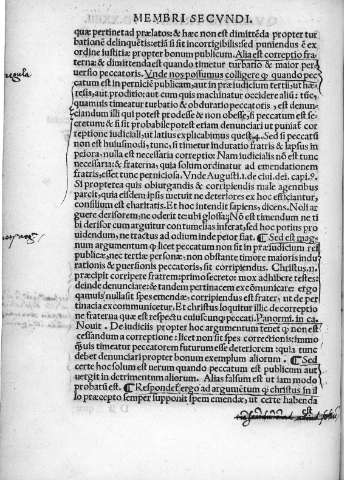 MEMBRI SECVNDI.
quæ pertinet ad prælatos & hæc non est dimittēda propter tur
bationē delinquētis: etiā si sit incorrigibilis: sed puniendus ē ex
ordine iustitiæ propter bonum publicum. Alia est correptio fra
terna: & dimittenda est quando timetur turbatio & maior per
uersio peccatoris. Vnde nos possumus colligere q̃ quando pec
catum est in perniciē publicam, aut in præiudicium tertii: ut hæ
resis, aut proditio: aut cum quis machinatur occidere aliū: tūc,
quamuis timeatur turbatio & obduratio peccatoris, est denun
ciandum illi qui potest prodesse & non obesse, si peccatum est se
cretum: & si sit probabile potest etiam denunciari ut puniat̃ cor
reptione iudiciali, ut latius explicabimus quæst. 4. Sed si peccatū
non est huiusmodi, tunc, si timetur induratio fratris & lapsus in
peiora: nulla est necessaria correptio: Nam iudicialis nō est tunc
necessaria: & fraterna, quia solum ordinatur ad emendationem
fratris, esset tunc perniciosa. Vnde Augusti. 1. de ciui. dei. capi. 9.
Si propterea quis obiurgandis & corripiendis male agentibus
parcit, quia eisdem ipsis metuit ne deteriores ex hoc efficiantur,
consilium est charitatis. Et hoc intendit sapiens, dicens. Noli ar
guere derisorem, ne oderit te: ubi glossa, Nō est timendum ne ti
bi derisor cum arguitur contumelias inferat, sed hoc potius pro
uidendum, ne tractus ad odium inde peior fiat. ¶ Sed est mag
num argumentum q̃ licet peccatum non sit in præiudicium rei
publicæ, nec tertiæ personæ, non obstante timore maioris indu
rationis & peruersionis peccatoris, sit corripiendus. Christus. n.
præcipit corripere fratrem primo secreto: mox adhibere testes:
deinde denunciare: & tandem pertinacem excōmunicare: ergo
quamuis nulla sit spes emendæ: corripiendus est frater, ut de per
tinacia excommunicetur. Et christus loquitur illic de correptio
ne fraterna quæ est respectu cuiuscunq; peccati. Panormi. in ca.
Nouit. De iudiciis propter hoc argumentum tenet q̃ non est
cessandum a correptione: licet non sit spes correctionis: immo
q̃uis timeatur peccatorem futurum esse deteriorem: quia tunc
debet denunciari propter bonum exemplum aliorum. ¶ Sed
certe hoc solum est uerum quando peccatum est publicum aut
uergit in detrimentum aliorum. Alias falsum est ut iam modo
probatū est. ¶ Respondet̃ ergo ad argumētum q̃ christus in il
lo præcepto semper supponit spem emendæ, ut certe habenda
regula